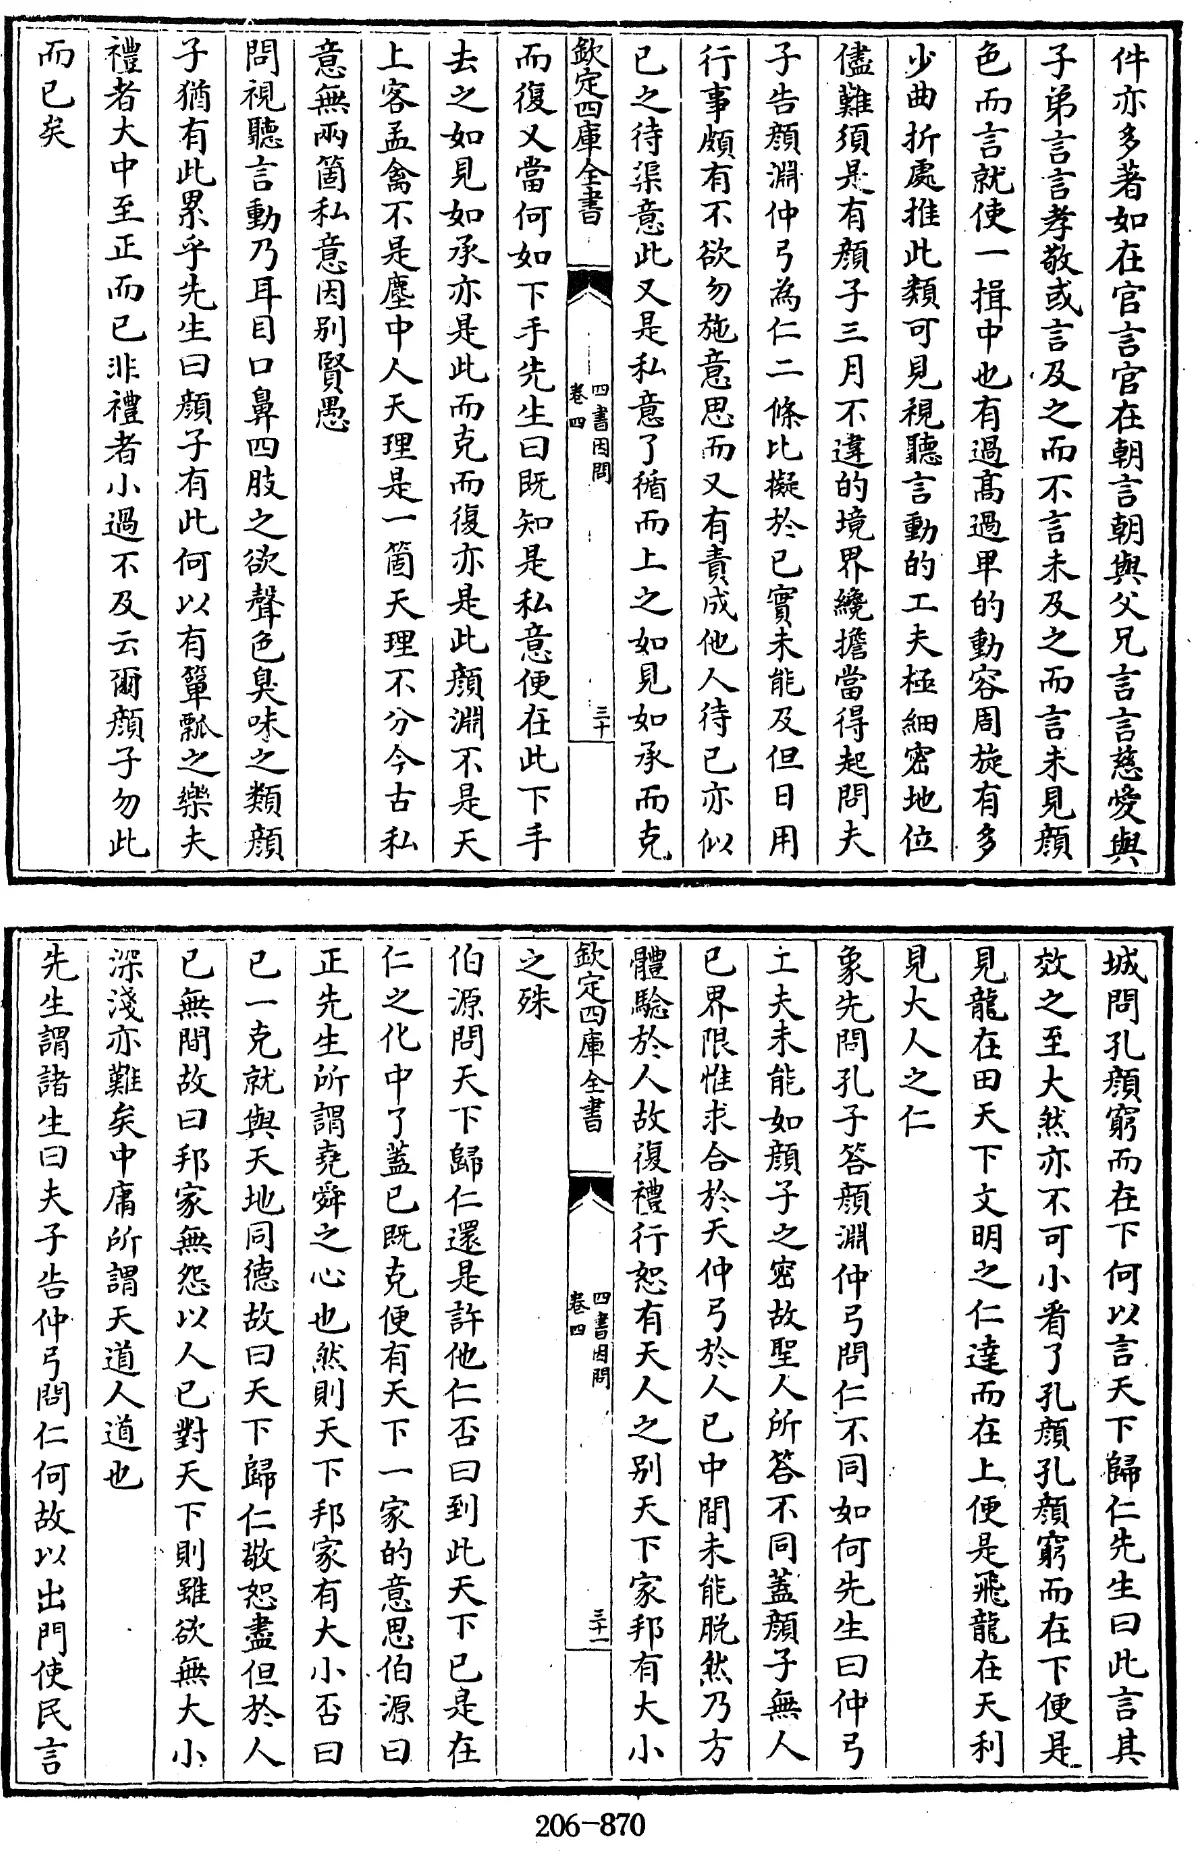 件亦多著如在官言官在朝言朝與父兄言言慈愛與
子弟言言孝敬或言及之而不言未及之而言未見顔
色而言就使一揖中也有過髙過卑的動容周旋有多
少曲折處推此類可見視聽言動的工夫極細宻地位
儘難須是有顔子三月不違的境界纔擔當得起問夫
子告顔淵仲弓為仁二條比擬於已實未能及但日用
行事頗有不欲勿施意思而又有責成他人待已亦似
已之待渠意此又是私意了循而上之如見如承而克
欽定四庫全書
四書因問
卷四
三十
而復又當何如下手先生曰既知是私意便在此下手
去之如見如承亦是此而克而復亦是此顔淵不是天
上客孟禽不是塵中人天理是一箇天理不分今古私
意無兩箇私意因别賢愚
問視聽言動乃耳目口鼻四肢之欲聲色臭味之類顔
子猶有此累乎先生曰顔子有此何以有簞瓢之樂夫
禮者大中至正而已非禮者小過不及云爾顔子勿此
而已矣
城問孔顔窮而在下何以言天下歸仁先生曰此言其
效之至大然亦不可小看了孔顔孔顔窮而在下便是
見龍在田天下文明之仁達而在上便是飛龍在天利
見大人之仁
象先問孔子答顔淵仲弓問仁不同如何先生曰仲弓
工夫未能如顔子之宻故聖人所答不同蓋顔子無人
已界限惟求合於天仲弓於人已中間未能脱然乃方
體驗於人故復禮行恕有天人之别天下家邦有大小
欽定四庫全書
四書因問
卷四
三十一
之殊
伯源問天下歸仁還是許他仁否曰到此天下已是在
仁之化中了蓋已既克便有天下一家的意思伯源曰
正先生所謂堯舜之心也然則天下邦家有大小否曰
已一克就與天地同德故曰天下歸仁敬恕盡但於人
已無間故曰邦家無怨以人已對天下則雖欲無大小
深淺亦難矣中庸所謂天道人道也
先生謂諸生曰夫子告仲弓問仁何故以出門使民言
206-870